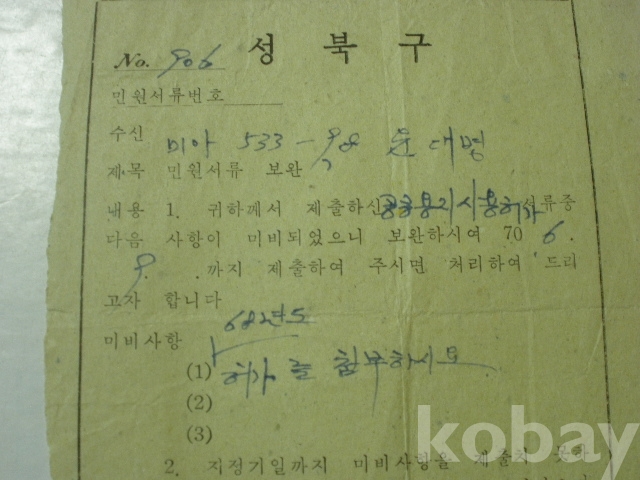 No. 906 성북구
민원서류번호
수신 미아 533-98 윤대명
제목 민원서류 보완
내용 1. 귀하께서 제출하신 공공용지사용허가 서류중
다음 사항이 미비되었으니 보완하시여 70 6.
9. .까지 제출하여 주시면 처리하여 드리
고자 합니다
68년도
미비사항
(1) 허가 를 첨부하시요
(2)
(3)
2. 지정기일까지 미비사항을 제출치 못하
kobay